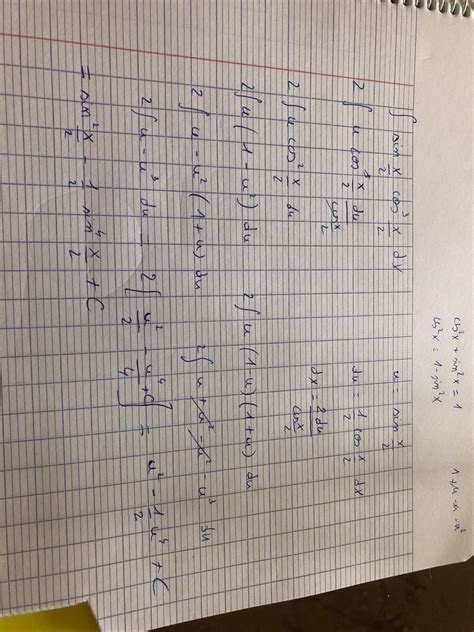 cos²x + sin²x = 1
cos²x = 1 - sin²x
1 + u - u - u²
∫ sin x/2 cos³ x/2 dx
u = sin x/2
2 ∫ u cos³ x/2 du / cos x/2
du = 1/2 cos x/2 dx
2 ∫ u cos² x/2 du
dx = 2du / cos x/2
2 ∫ u (1 - u²) du
2 ∫ u (1 - u)(1 + u) du
2 ∫ u - u² (1 + u) du
2 ∫ u + u² - u² - u³ du
2 ∫ u - u³ du = 2 [ u²/2 - u⁴/4 + C ] = u² - 1/2 u⁴ + C
= sin² x/2 - 1/2 sin⁴ x/2 + C